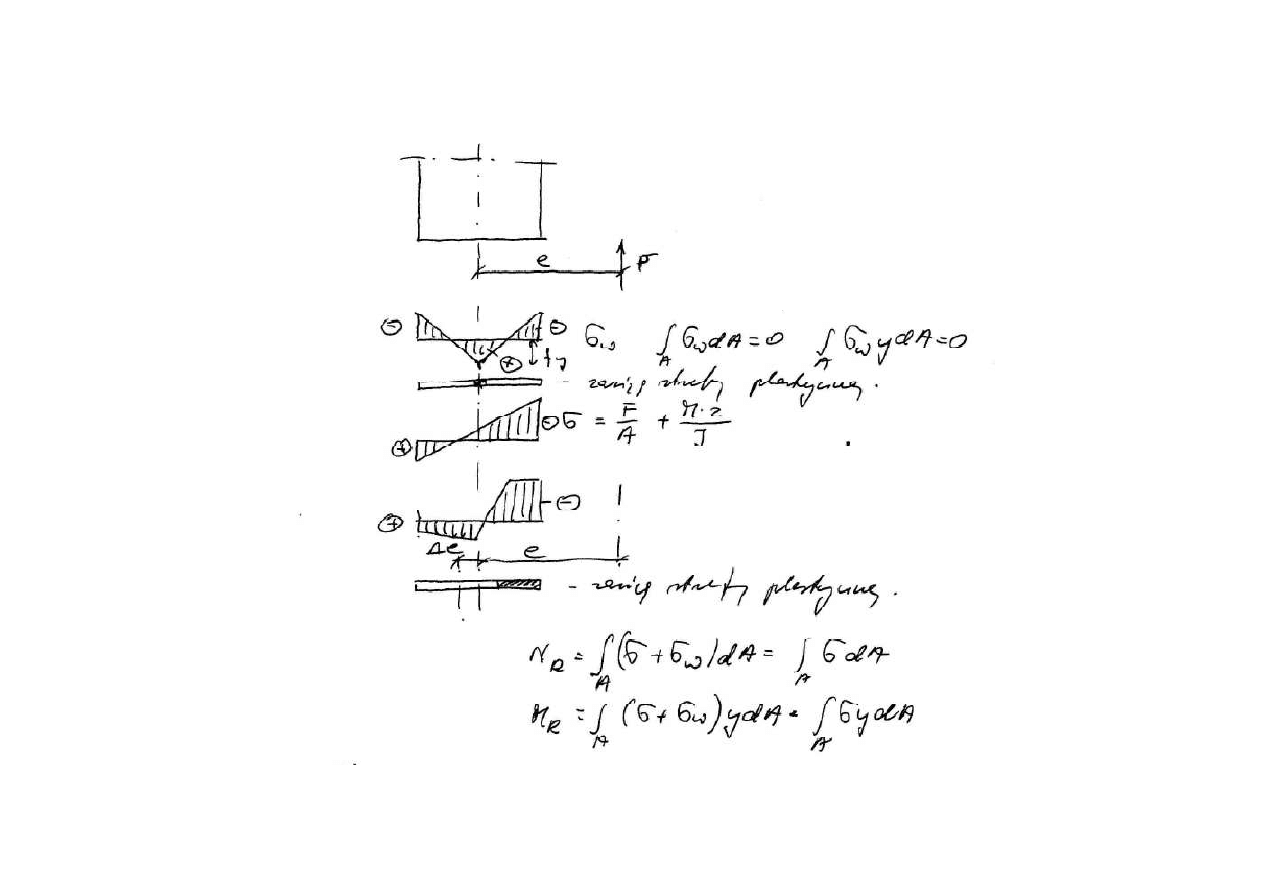 e F
⊖ ⊖ σw ∫A σw dA = 0 ∫A σw y dA = 0
⊕ fy
- zasięg strefy plastycznej.
⊕ ⊖ σ = F/A + M·z/J
⊕ (-)
Δe e
- zasięg strefy plastycznej.
N_R = ∫A (σ + σw) dA = ∫A σ dA
M_R = ∫A (σ + σw) y dA = ∫A σ y dA